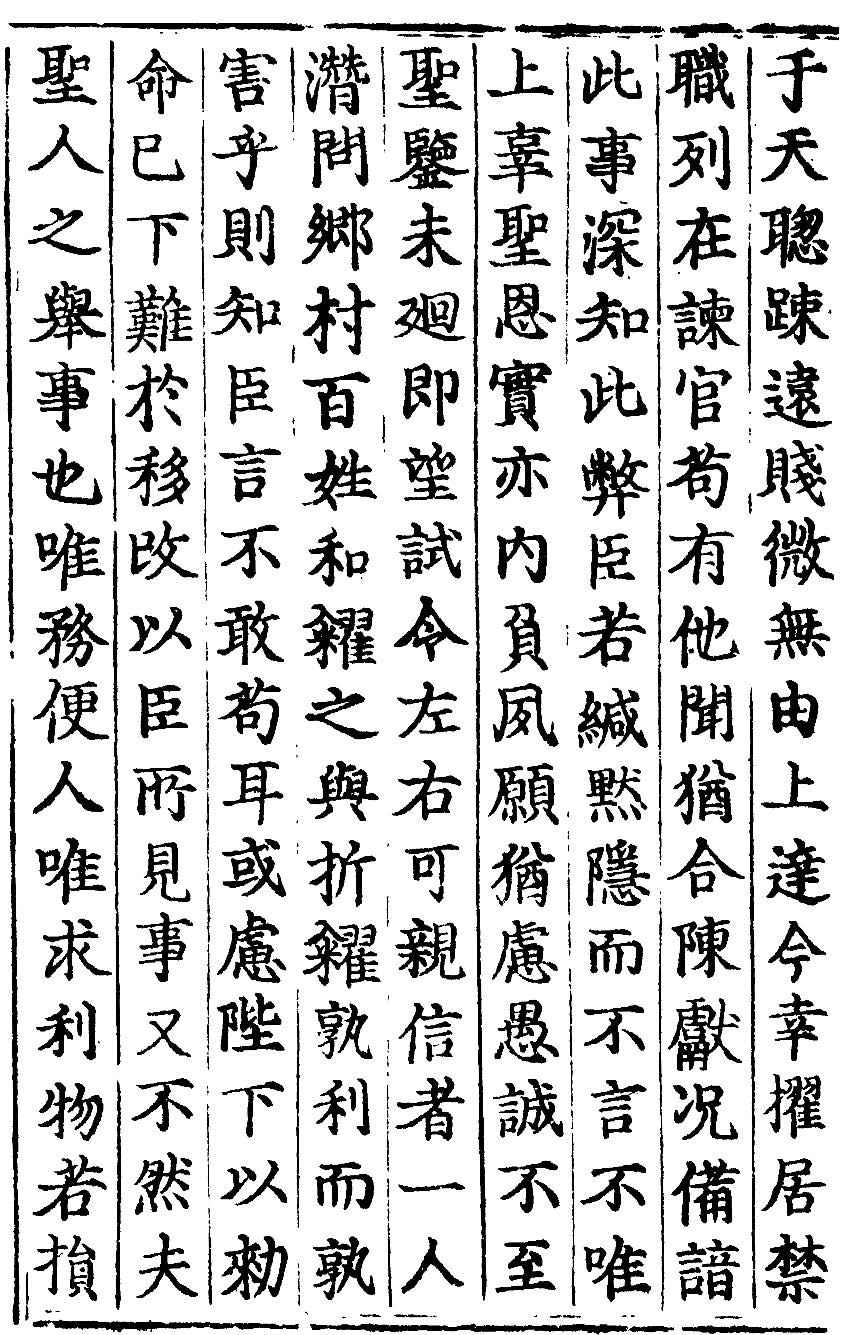 于天聦踈遠賤微無由上達今幸擢居禁
職列在諫官苟有他聞猶合陳獻况備諳
此事深知此弊臣若緘默隱而不言不唯
上辜聖恩實亦内負夙願猶慮愚誠不至
聖鑒未廻即望試令左右可親信者一人
潛問鄉村百姓和糴之與折糴孰利而孰
害乎則知臣言不敢苟耳或慮陛下以勑
命已下難於移改以臣所見事又不然夫
聖人之舉事也唯務便人唯求利物若損